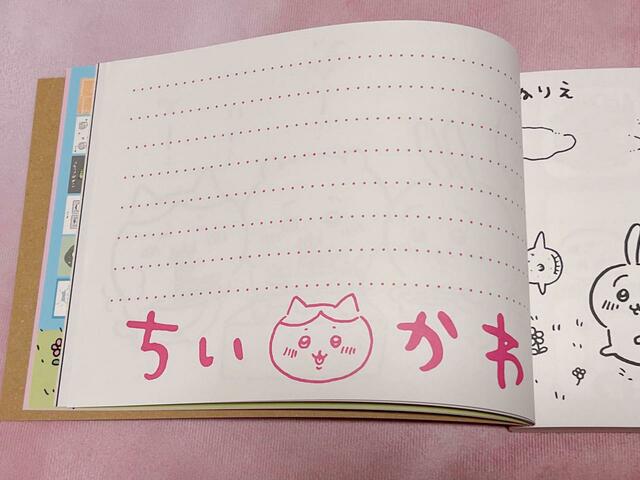 ちいかわ
ぬりえ